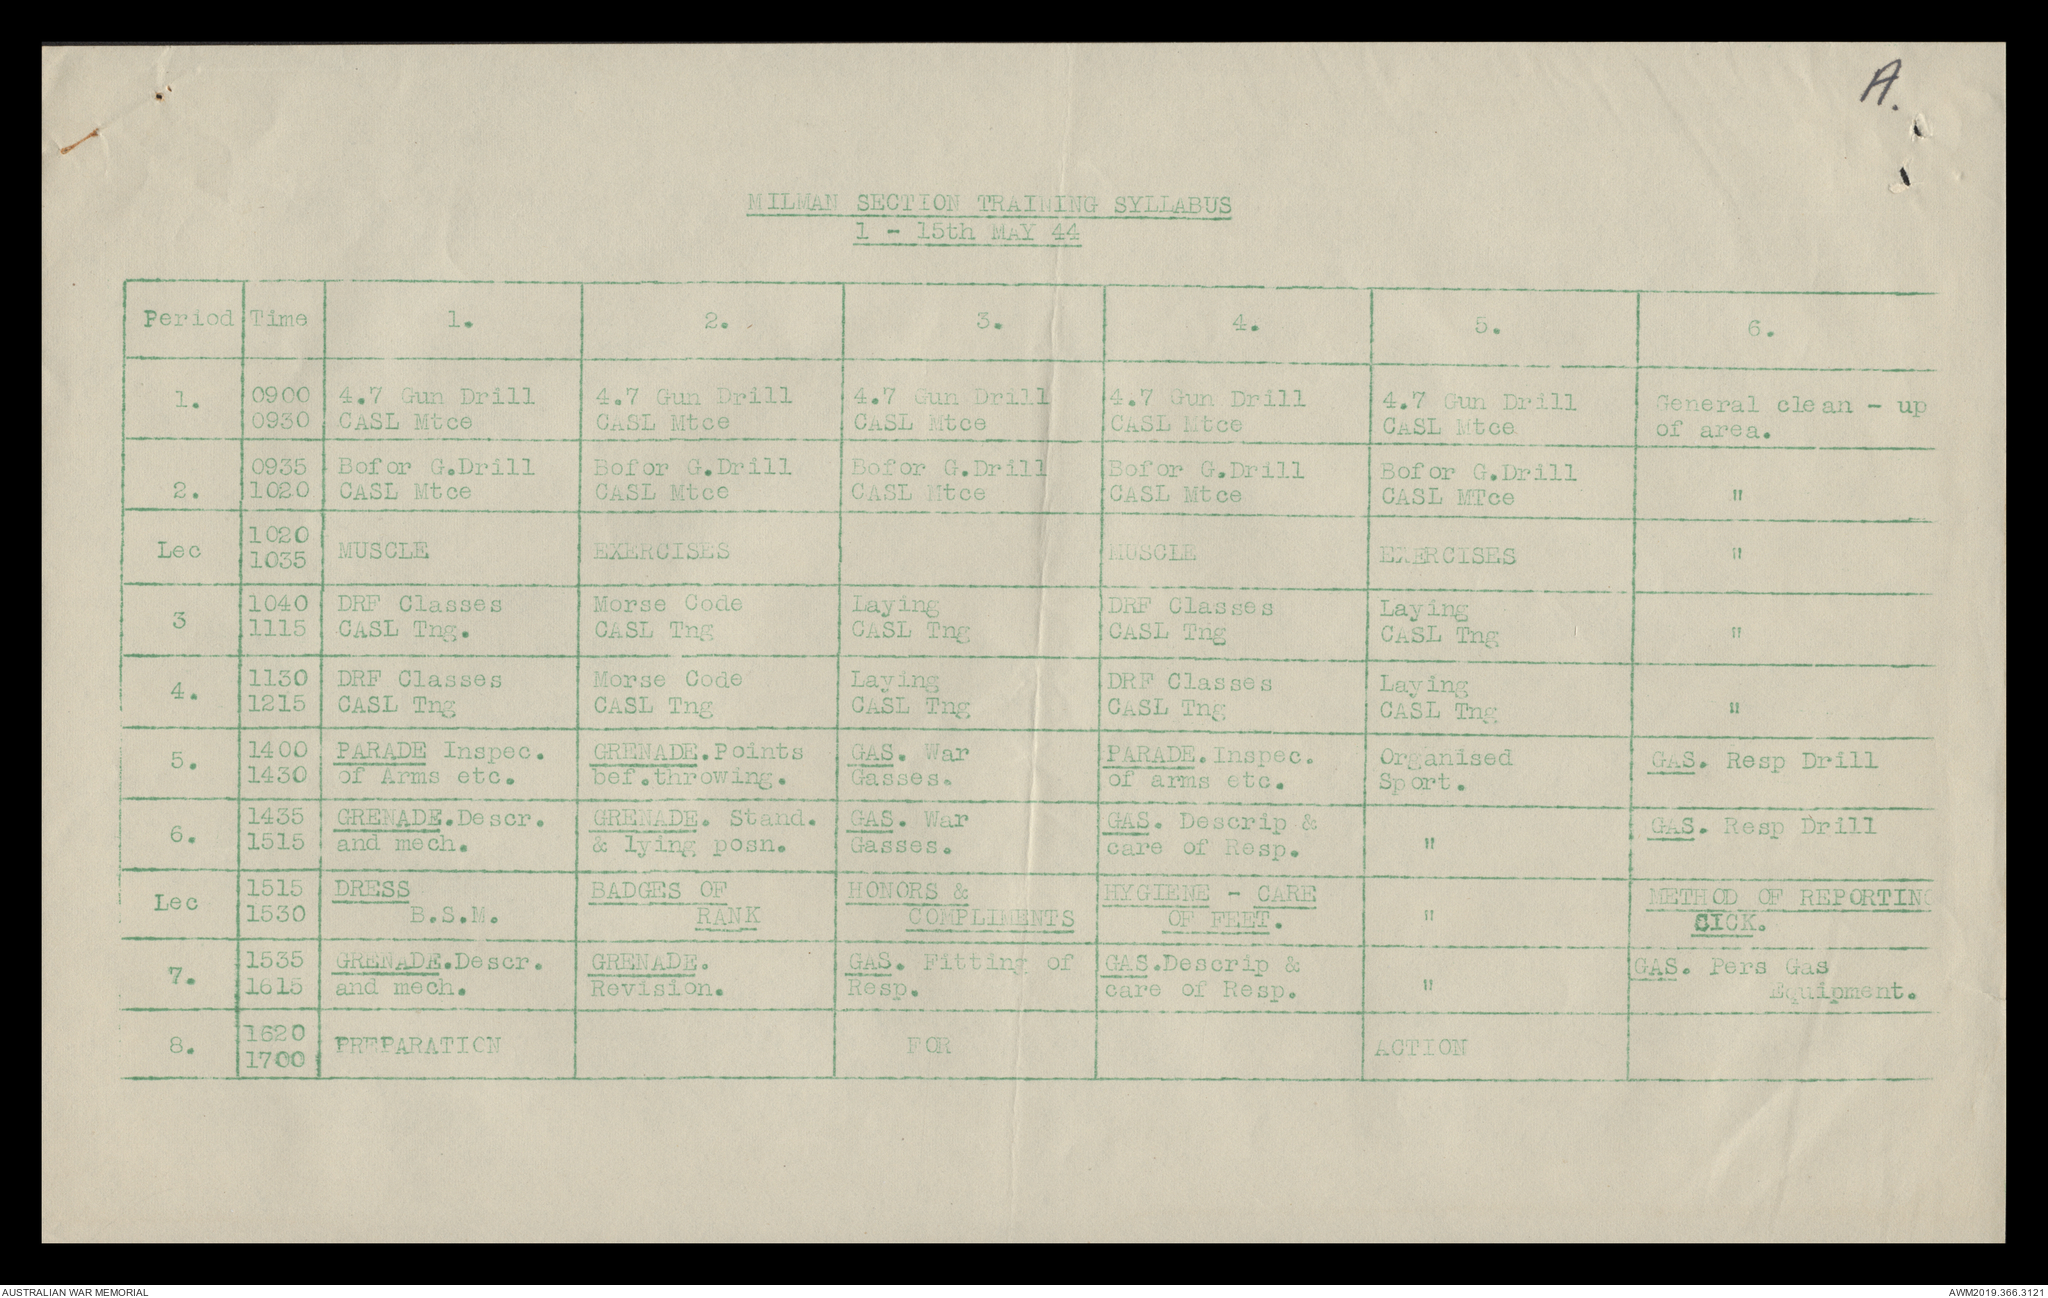 A.
MILMAN SECTION TRAINING SYLLABUS
1 - 15th MAY 44
Period Time 1. 2. 3. 4. 5. 6.
1. 0900 4.7 Gun Drill 4.7 Gun Drill 4.7 Gun Drill 4.7 Gun Drill 4.7 Gun Drill General clean - up
0930 CASL Mtce CASL Mtce CASL Mtce CASL Mtce CASL Mtce of area.
0935 Bofor G.Drill Bofor G.Drill Bofor G.Drill Bofor G.Drill Bofor G.Drill
2. 1020 CASL Mtce CASL Mtce CASL Mtce CASL Mtce CASL MTce "
Lec 1020
1035 MUSCLE EXERCISES MUSCLE EXERCISES "
3 1040 DRF Classes Morse Code Laying DRF Classes Laying
1115 CASL Tng. CASL Tng CASL Tng CASL Tng CASL Tng "
4. 1130 DRF Classes Morse Code Laying DRF Classes Laying
1215 CASL Tng CASL Tng CASL Tng CASL Tng CASL Tng "
5. 1400 PARADE Inspec. GRENADE.Points GAS. War PARADE.Inspec. Organised GAS. Resp Drill
1430 of Arms etc. bef.throwing. Gasses. of arms etc. Sport.
6. 1435 GRENADE.Descr. GRENADE. Stand. GAS. War GAS. Descrip & GAS. Resp Drill
1515 and mech. & lying posn. Gasses. care of Resp. "
Lec 1515 DRESS BADGES OF HONORS & HYGIENE - CARE METHOD OF REPORTING
1530 B.S.M. RANK COMPLIMENTS OF FEET. " SICK.
7. 1535 GRENADE.Descr. GRENADE. GAS. Fitting of GAS.Descrip & GAS. Pers Gas
1615 and mech. Revision. Resp. care of Resp. " Equipment.
8. 1620 PREPARATION FOR ACTION
1700
AUSTRALIAN WAR MEMORIAL AWM2019.366.3121